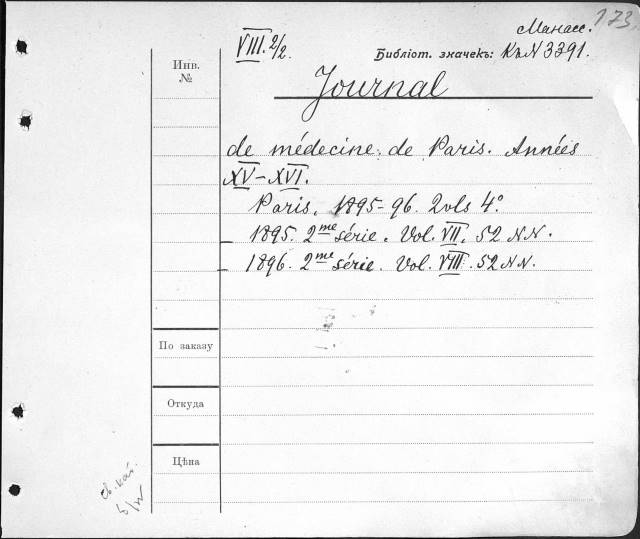 173.
Манас.
VIII. 2/2.
Библіот. значекъ: КъN3391.
Инв.
№
Journal
de médecine de Paris. Années
XV-XVI.
Paris. 1895-96. 2vols 4°
– 1895. 2me série. Vol. VII. 52 NN.
– 1896. 2me série. Vol. VIII. 52 NN.
По заказу
Откуда
Цѣна